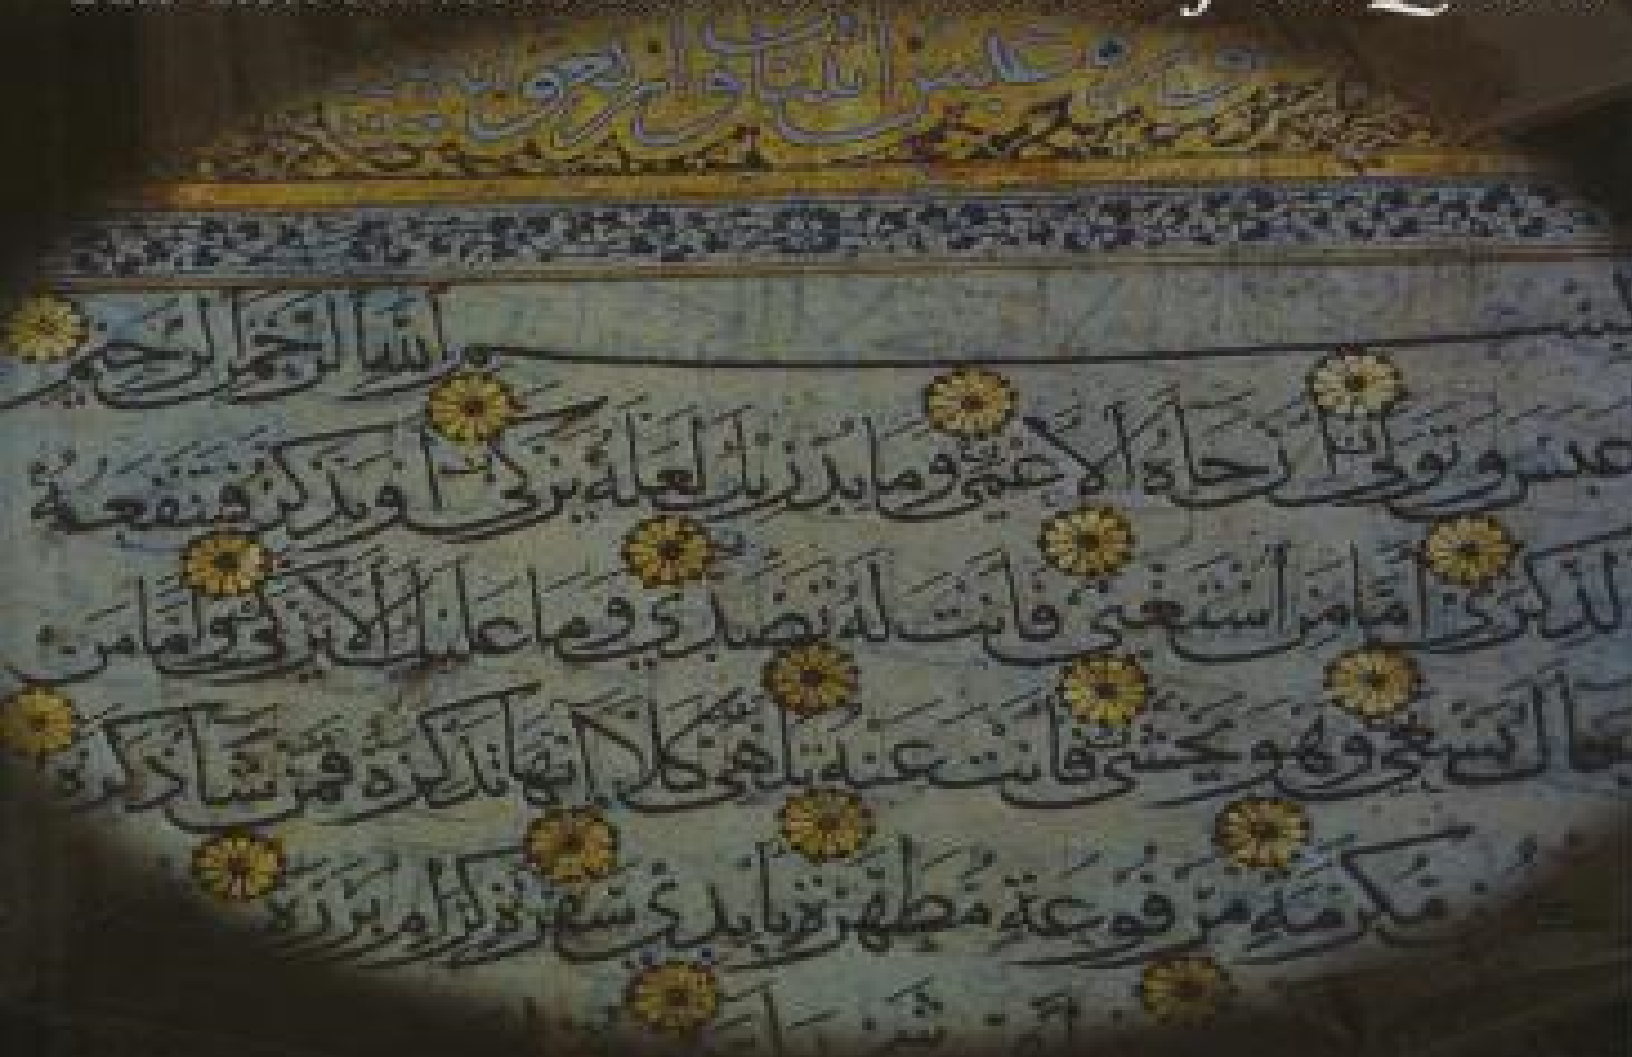 سورة عبس اثنتان واربعون
بسم الله الرحمن الرحيم
عبس وتولى ان جاه الاعمى وما يدريك لعله يزكى او يذكر فتنفعه
لذكرى اما من استغنى فانت له تصدى وما عليك الا يزكى واما من
جاك يسعى وهو يخشى فانت عنه تلهى كلا انها تذكرة فمن شا ذكره
مكرمة مرفوعة مطهرة بايدى سفرة كرام بررة